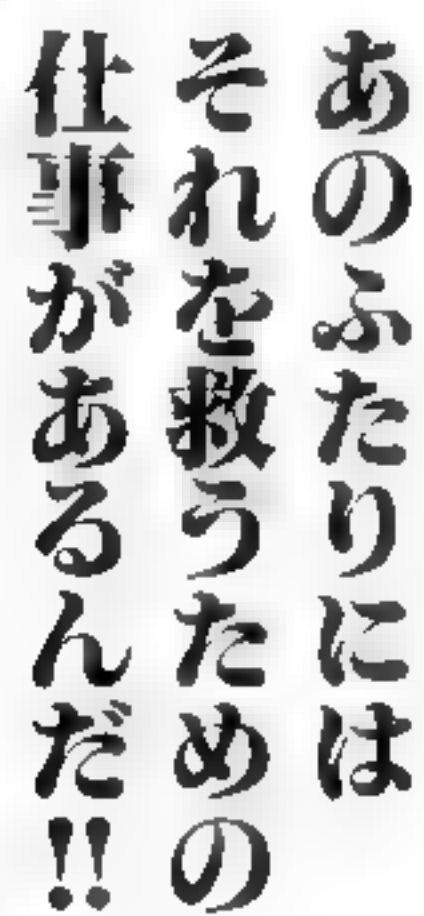 あのふたりには
それを救うための
仕事があるんだ!!